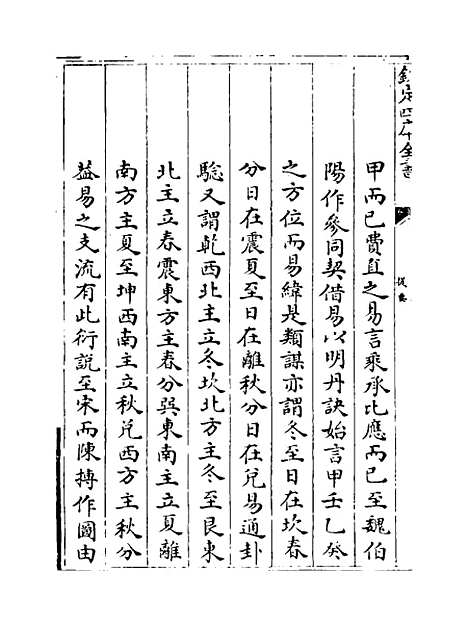 欽定四庫全書
提要
甲而已費直之易言乘承比應而已至魏伯
陽作參同契借易以明丹訣始言甲壬乙癸
之方位而易緯是類謀亦謂冬至日在坎春
分日在震夏至日在離秋分日在兌易通卦
驗又謂乾西北主立冬坎北方主冬至艮東
北主立春震東方主春分巽東南主立夏離
南方主夏至坤西南主立秋兌西方主秋分
葢易之支流有此衍說至宋而陳摶作圖由